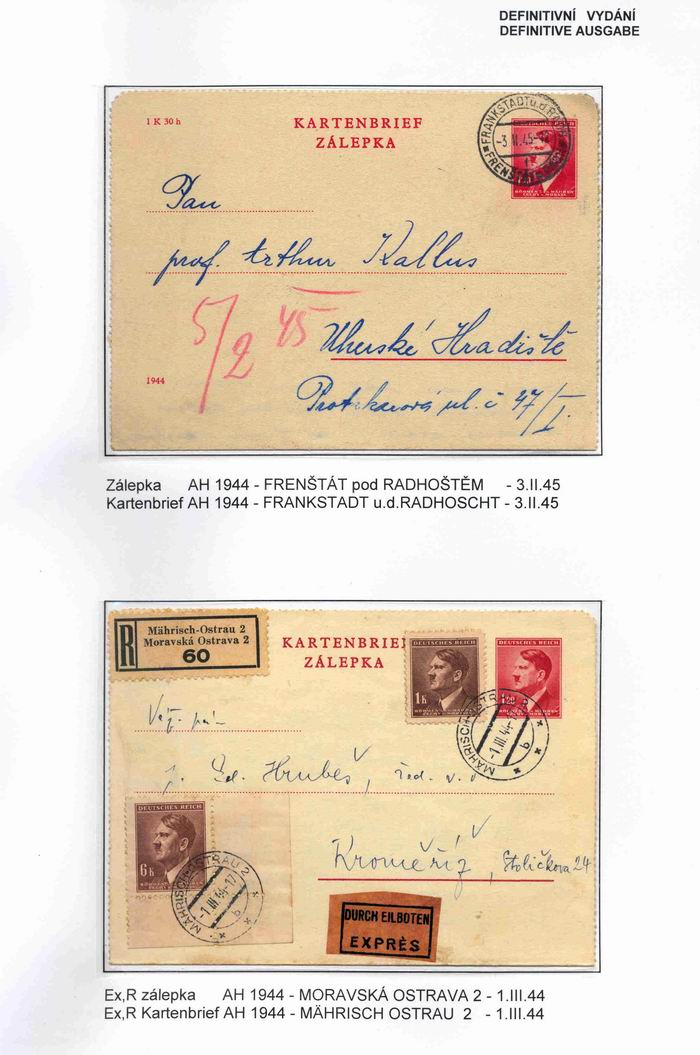 DEFINITIVNÍ VYDÁNÍ
DEFINITIVE AUSGABE
1 K 30 h
KARTENBRIEF
ZÁLEPKA
DEUTSCHES REICH
FRANKSTADT u.d.
-3.II.45
FRENŠTÁT
Pan
prof. Arthur Kallus
5/2 45
Uherské Hradiště
1944
ul. č 47/I.
Zálepka AH 1944 - FRENŠTÁT pod RADHOŠTĚM - 3.II.45
Kartenbrief AH 1944 - FRANKSTADT u.d.RADHOSCHT - 3.II.45
R
Mährisch-Ostrau 2
Moravská Ostrava 2
60
KARTENBRIEF
ZÁLEPKA
DEUTSCHES REICH
1 K
DEUTSCHES REICH
1.20
MÄHRISCH-OSTRAU 2
-1.III.44
b
Hrubeš,
DEUTSCHES REICH
6 K
MÄHRISCH-OSTRAU 2
-1.III.44-17
b
Kroměříž, Stoličkova 24
DURCH EILBOTEN
EXPRÈS
Ex,R zálepka AH 1944 - MORAVSKÁ OSTRAVA 2 - 1.III.44
Ex,R Kartenbrief AH 1944 - MÄHRISCH OSTRAU 2 - 1.III.44